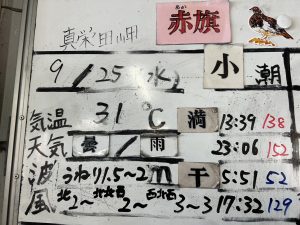 真栄田岬
赤旗
あか
9/25 水 小潮
気温 31℃ 満 13:39 138
天気 曇/雨 23:06 152
波 うねり1.5~2m 干 5:51 52
風 北2~ 北北西2~ 西北西3~3 17:32 129